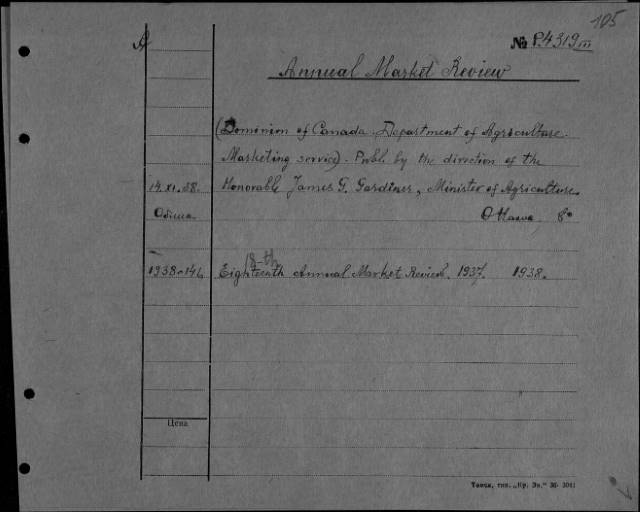 105
A
№ P.4319 III
Annual Market Review
(Dominion of Canada. Department of Agriculture.
Marketing service). Publ. by the direction of the
14.XI.38. Honorable James G. Gardiner, Minister of Agriculture.
Обмен Ottawa 8°
18-th
1938-146 Eighteenth Annual Market Review. 1937. 1938.
Цена
Томск, тип. „Кр. Зн.“ 36-3041